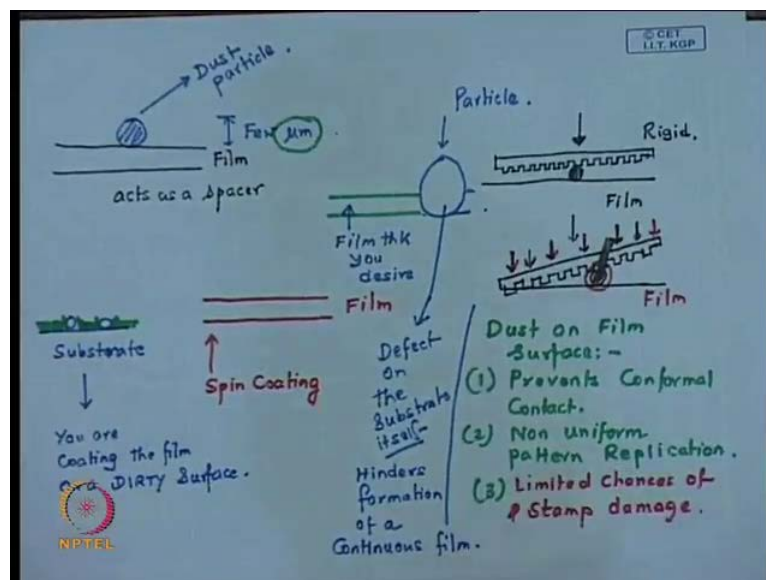 © CET
I.I.T. KGP
Dust
particle.
Few μm.
Film
acts as a spacer
Particle.
Film thk
you
desire
Rigid.
Film
Film
Substrate
You are
Coating the film
on a DIRTY Surface.
Film
Spin Coating
Defect
on
the
Substrate
itself-
Hinders
formation
of a
Continuous film.
Dust on Film
Surface:-
(1) Prevents Conformal
Contact.
(2) Non uniform
pattern Replication.
(3) Limited chances of
Stamp damage.
NPTEL